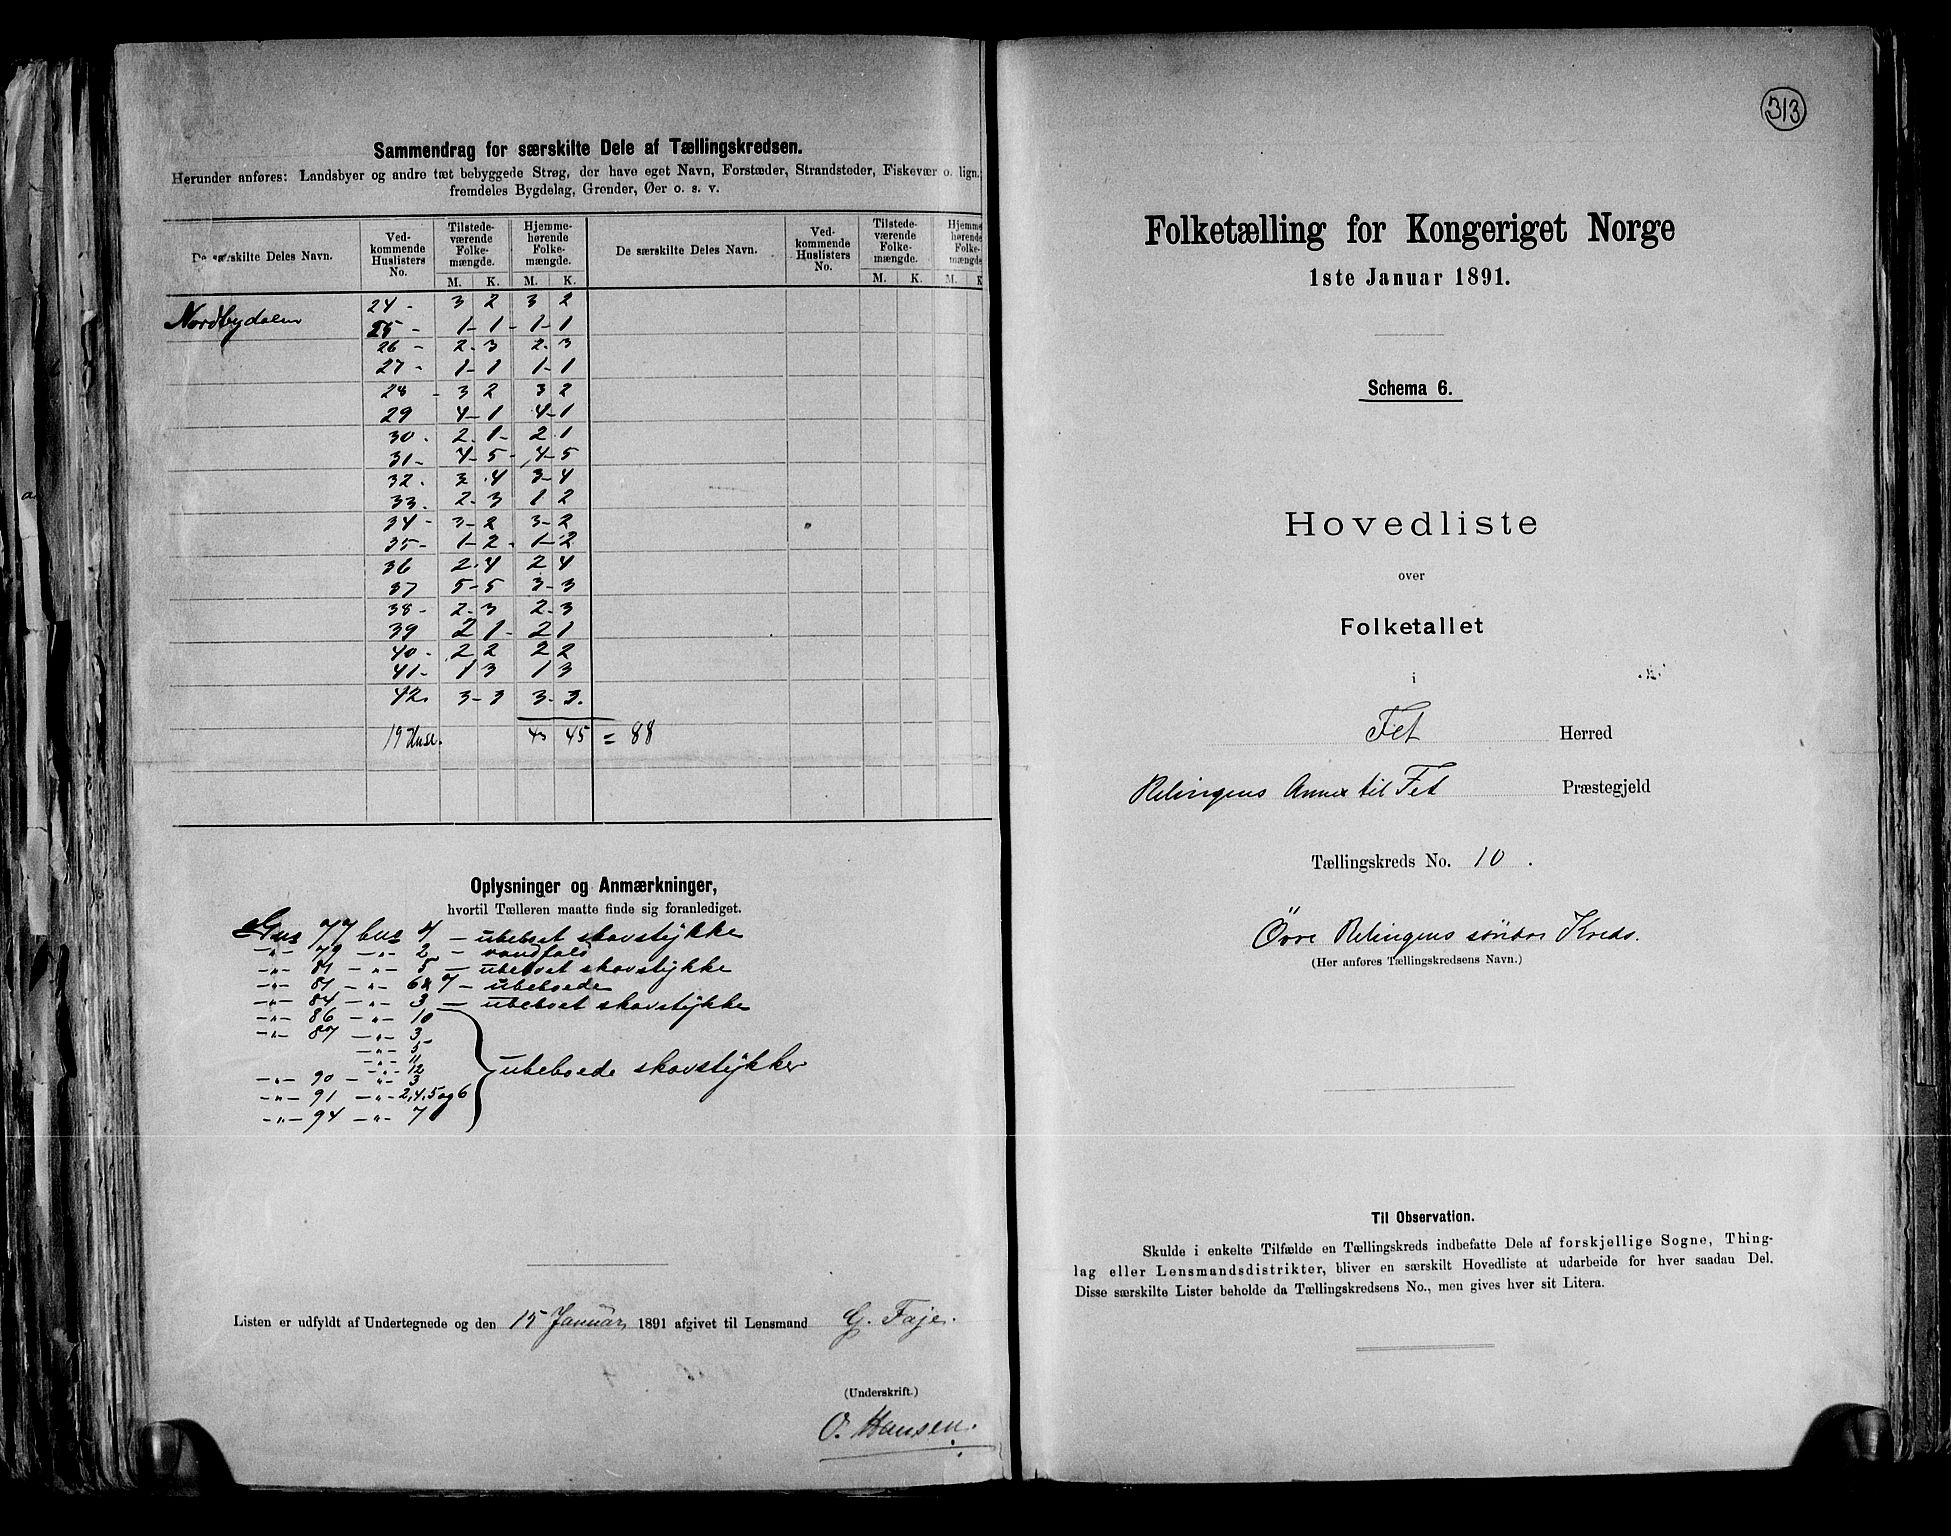 Sammendrag for særskilte Dele af Tællingskredsen.
Herunder anføres: Landsbyer og andre tæt bebyggede Strøg, der have eget Navn, Forstæder, Strandsteder, Fiskevær o. lign.;
fremdeles Bygdelag, Grender, Øer o. s. v.
De særskilte Deles Navn. Ved-kommende Huslisters No. Tilstede-værende Folke-mængde. Hjemme-hørende Folke-mængde. De særskilte Deles Navn. Ved-kommende Huslisters No. Tilstede-værende Folke-mængde. Hjemme-hørende Folke-mængde
M. K. M. K. M. K. M. K
Nordbydalen 24 - 3 2 3 2
25 - 1 - 1 - 1 - 1
26 - 2 - 3 2 - 3
27 - 1 - 1 1 - 1
28 - 3 2 3 2
29 4 - 1 4 - 1
30 - 2 - 1 - 2 1
31 - 4 - 5 - 4 - 5
32 - 3 4 3 - 4
33 - 2 - 3 1 2
34 - 3 - 2 3 - 2
35 - 1 - 2 - 1 - 2
36 2 - 4 2 4
37 5 - 5 3 - 3
38 - 2 - 3 2 - 3
39 2 1 - 2 1
40 - 2 2 2 2
41 - 1 3 1 3
42 3 - 3 3 - 3.
19 Huse. 43 45 = 88
Oplysninger og Anmærkninger,
hvortil Tælleren maatte finde sig foranlediget.
Gns 77 bns 4 - ubeboet skovstykke
-"- 79 -"- 2 - vandfald
-"- 81 -"- 5 - ubeboet skovstykke
-"- 81 -"- 6 & 7 - ubeboede
-"- 84 -"- 3 - ubeboet skovstykke
-"- 86 -"- 10
-"- 87 -"- 3
-"- 5
-"- 11
-"- 12
ubeboede skovstykker
-"- 90 -"- 3
-"- 91 -"- 2, 4, 5 og 6
-"- 94 -"- 7
Listen er udfyldt af Undertegnede og den 15 Januar 1891 afgivet til Lensmand G. Faje.
(Underskrift.)
O. Hansen.
313
Folketælling for Kongeriget Norge
1ste Januar 1891.
Schema 6.
Hovedliste
over
Folketallet
i
Fet Herred
Relingens Annex til Fet Præstegjeld
Tællingskreds No. 10.
Övre Relingens söndre Kreds.
(Her anføres Tællingskredsens Navn.)
Til Observation.
Skulde i enkelte Tilfælde en Tællingskreds indbefatte Dele af forskjellige Sogne, Thing-
lag eller Lensmandsdistrikter, bliver en særskilt Hovedliste at udarbeide for hver saadan Del.
Disse særskilte Lister beholde da Tællingskredsens No., men gives hver sit Litera.